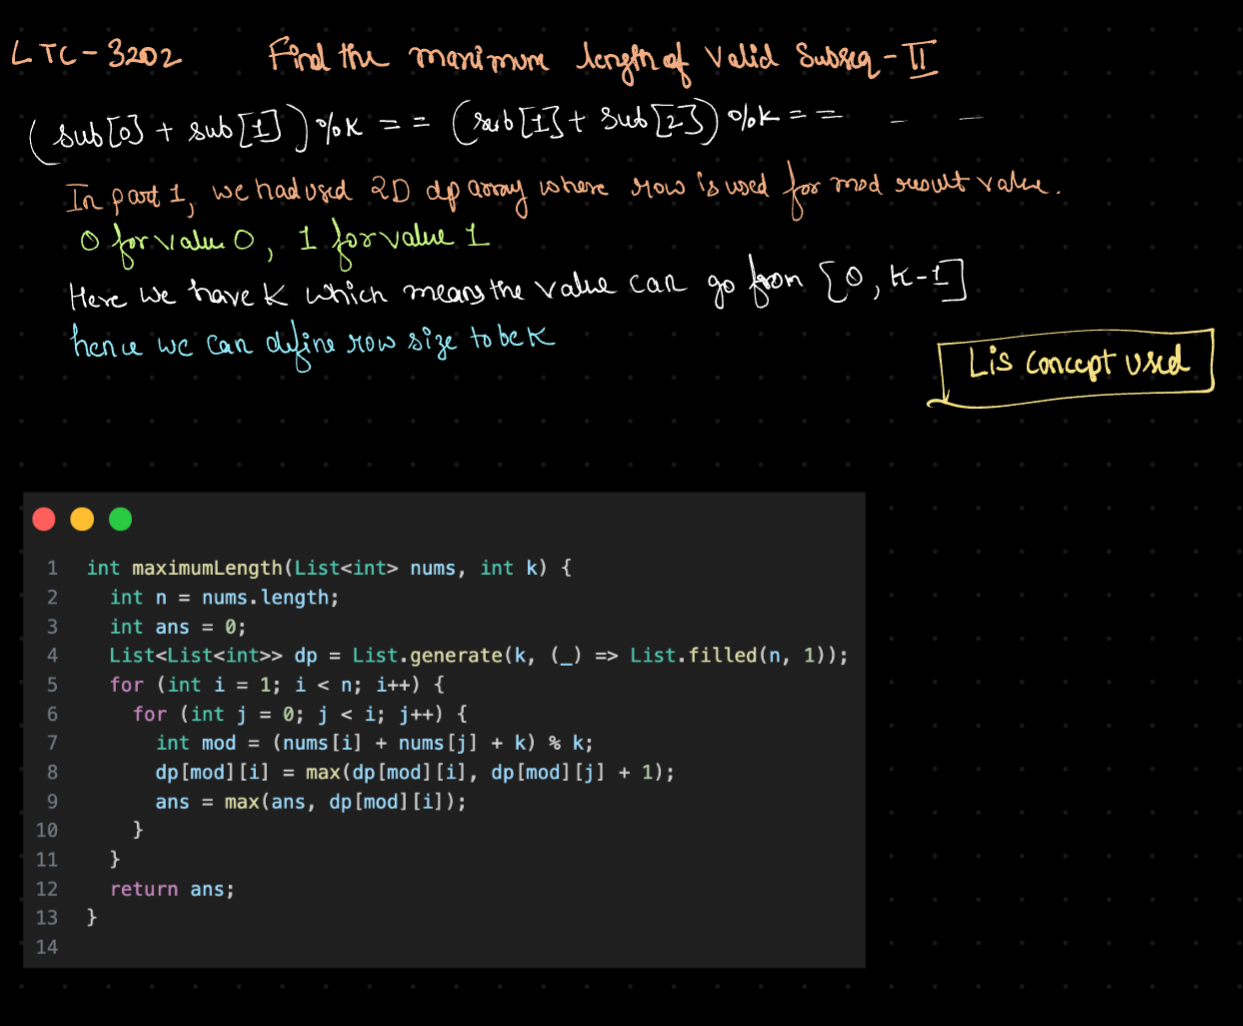 LTC-3202 Find the maximum length of Valid Subseq-II
(sub[0] + sub[1])%K == (sub[1]+ sub[2])%k == _ _
In part 1, we had used 2D dp array where row is used for mod result value.
0 for value 0, 1 for value 1
Here we have K which means the value can go from [0, K-1]
hence we can define row size to be K
Lis concept used
1 int maximumLength(List<int> nums, int k) {
2 int n = nums.length;
3 int ans = 0;
4 List<List<int>> dp = List.generate(k, (_) => List.filled(n, 1));
5 for (int i = 1; i < n; i++) {
6 for (int j = 0; j < i; j++) {
7 int mod = (nums[i] + nums[j] + k) % k;
8 dp[mod][i] = max(dp[mod][i], dp[mod][j] + 1);
9 ans = max(ans, dp[mod][i]);
10 }
11 }
12 return ans;
13 }
14